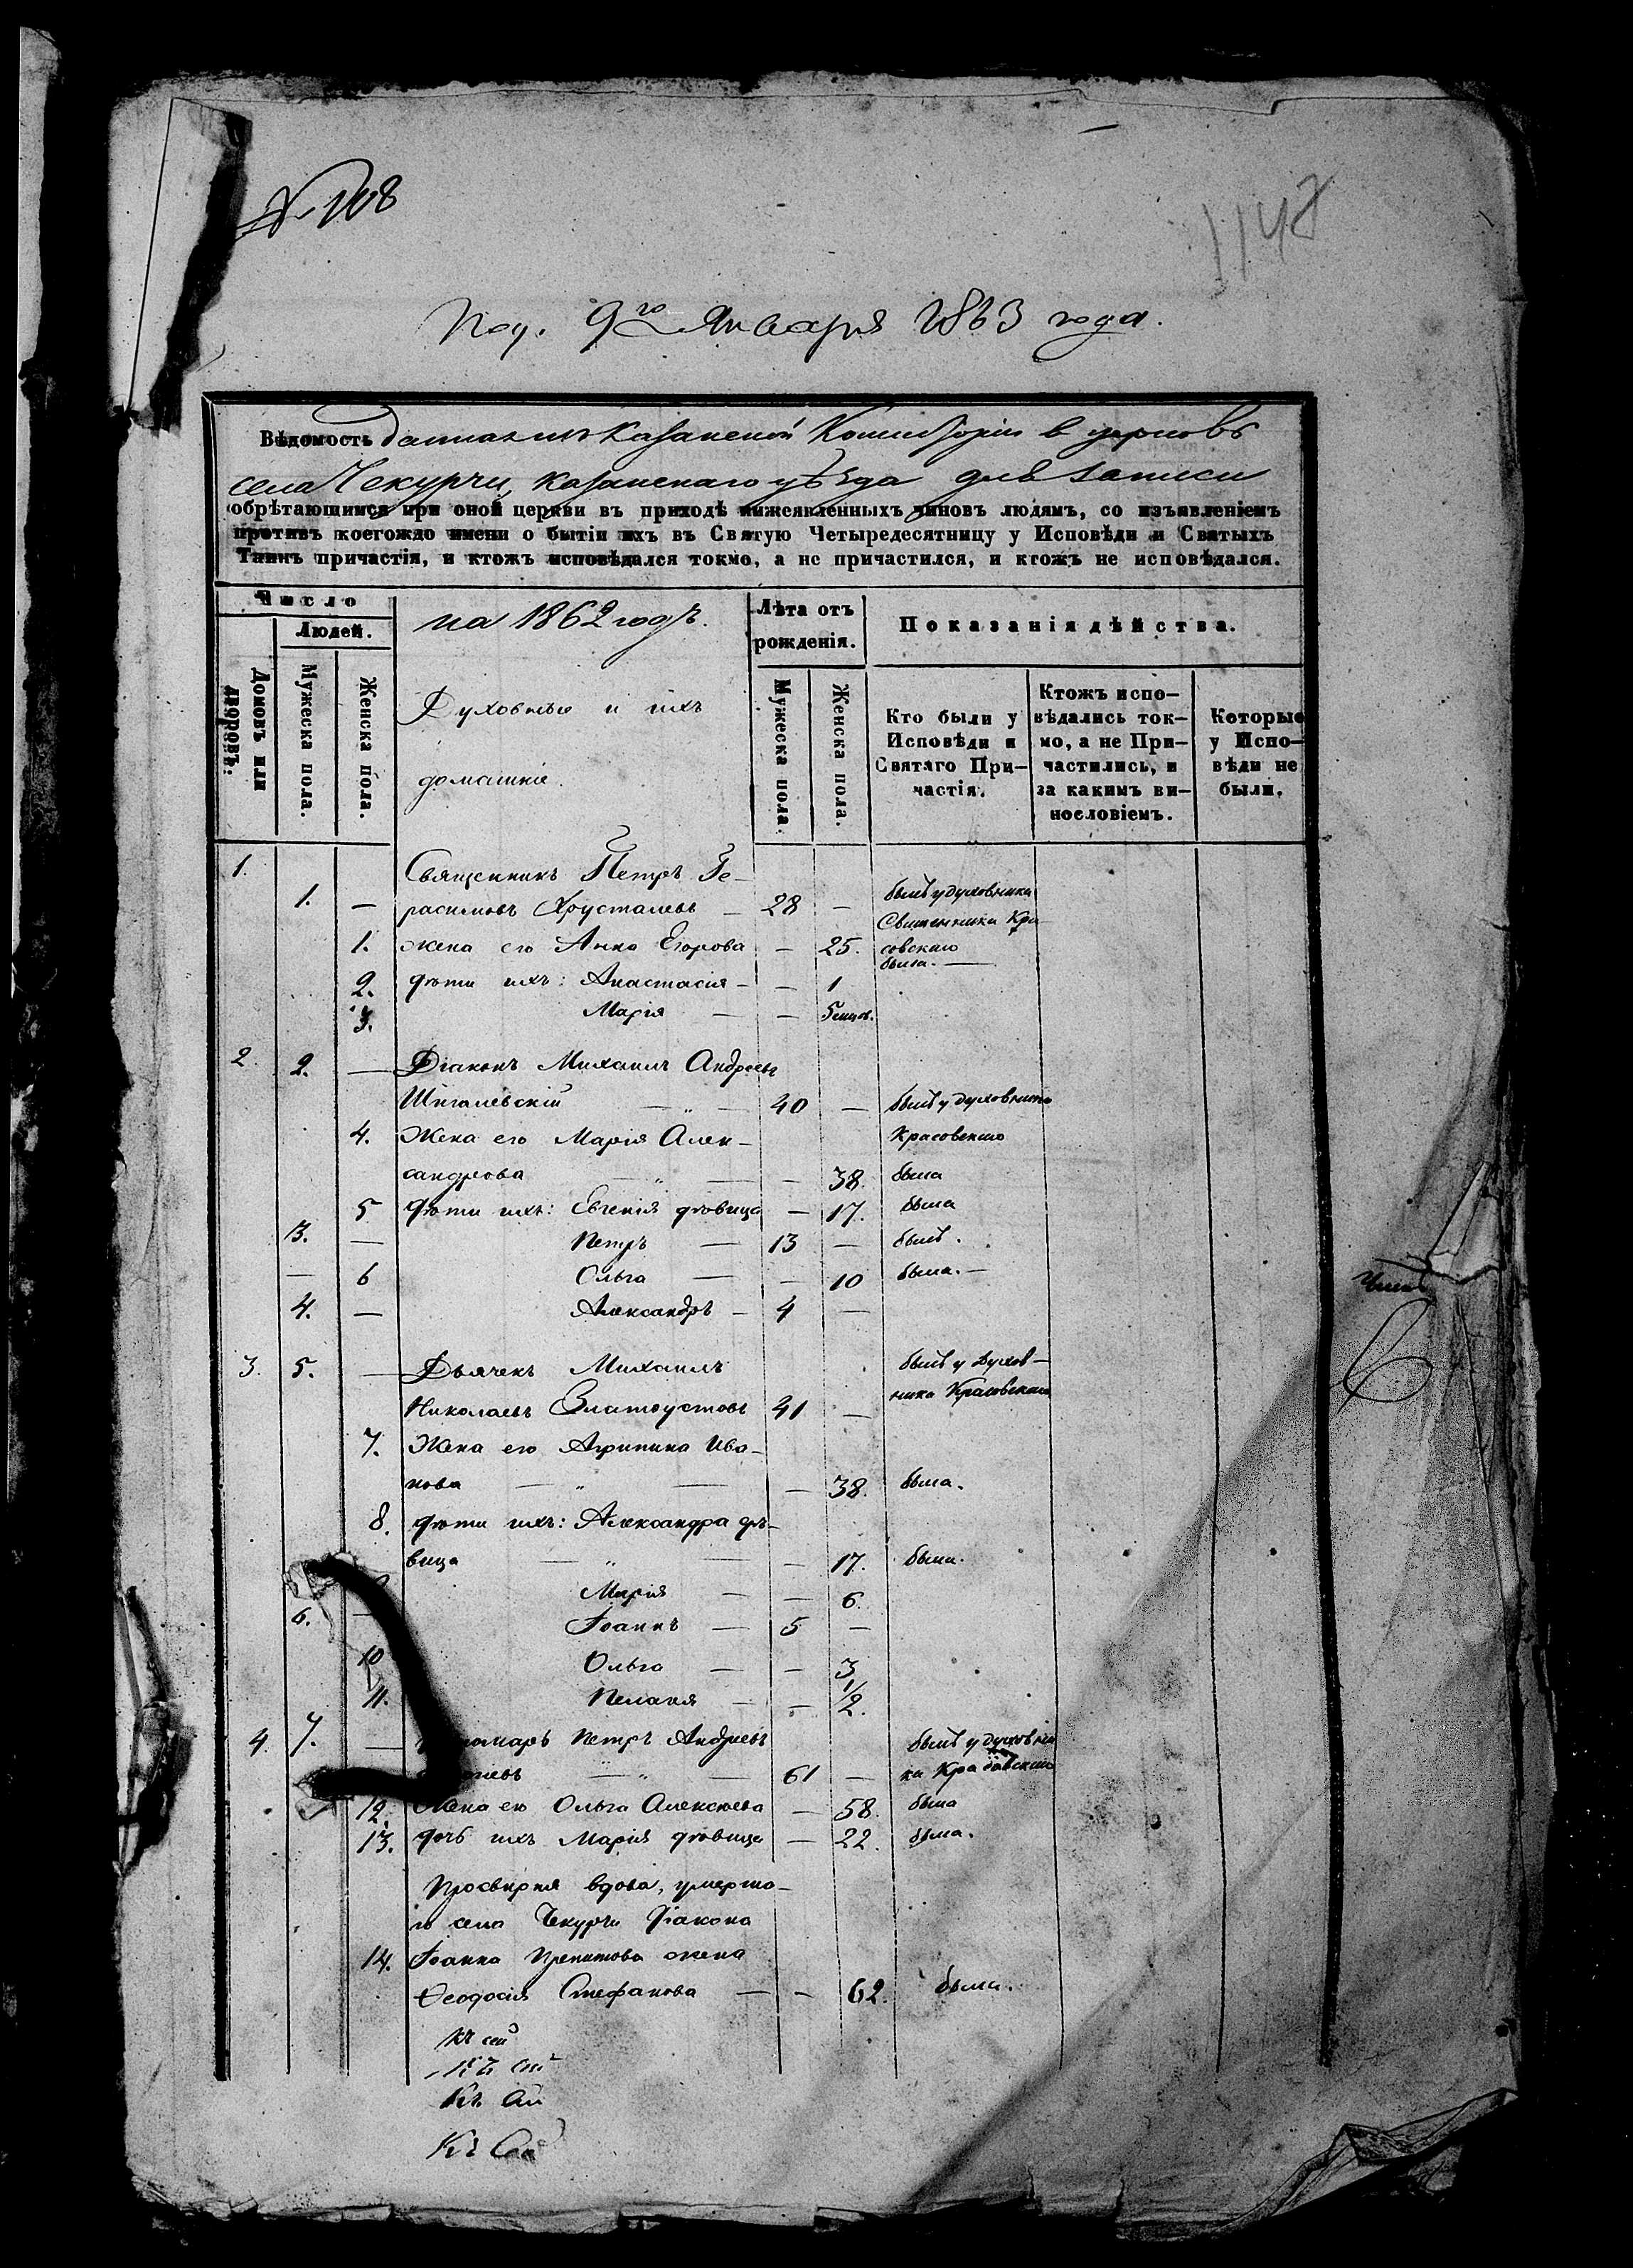 № 108
1148
Под. 9го Января 1863 года.
Вѣдомость данная изъ Казанской Консисторіи в церковь
села Чекурчи, Казанскаго уѣзда для записи
обрѣтающимся при оной церкви въ приходѣ нижеявленныхъ чиновъ людямъ, со изъявленіемъ
противъ коегождо имени о бытіи ихъ въ Святую Четыредесятницу у Исповѣди и Святыхъ
Таинъ причастія, и ктожъ исповѣдался токмо, а не причастился, и ктожъ не исповѣдался.
Число
Людей.
Домовъ или дворовъ.
Мужеска пола.
Женска пола.
на 1862 годъ.
Духовные и ихъ
домашніе.
Лѣта отъ
рожденія.
Мужеска пола.
Женска пола.
Показанія дѣйства.
Кто были у
Исповѣди и
Святаго При-
частія.
Ктожъ испо-
вѣдались ток-
мо, а не При-
частились, и
за какимъ ви-
нословіемъ.
Которые
у Испо-
вѣди не
были.
1. Священникъ Петръ Ге-
1. — расимовъ Хрусталевъ — 28 — былъ у духовника
Священника Кра
1. жена его Анна Егорова — 25. совскаго
была. —
2. дѣти ихъ: Анастасія — — 1
3. Марія — — 5 мцов.
2. 2. — Діаконъ Михаилъ Андреевъ
Шигалевскій — „ — 40 — былъ у духовника
4. Жена его Марія Алек- Красовскаго
сандрова — „ — — 38. была
5 дѣти ихъ: Евгенія дѣвица — 17. была
3. — Петръ — 13 — былъ.
— 6 Ольга — — 10 была. —
4. — Александръ — 4 —
3. 5. — Дьячекъ Михаилъ былъ у Духов-
Николаевъ Златоустовъ 41 — ника Красовскаго
7. Жена его Агрипина Ива-
нова — „ — — 38. была.
8. дѣти ихъ: Александра дѣ-
вица — „ — — 17. была.
Марія — — 6.
6. — Іоаннъ — 5 —
10 Ольга — — 3
11. Пелагія — — 1/2.
4. 7. — Петръ Андреевъ былъ у духовни
— „ — 61 — ка Красовскаго
12. Жена его Ольга Алексѣева — 58. была
13. дочь ихъ Марія дѣвица — 22. была.
Просвирня вдова, умерша-
го села Чекурчи Діакона
14. Іоанна жена
Ѳеодосія Стефанова — — 62. была.
Къ сей
Къ сей
Къ
Къ